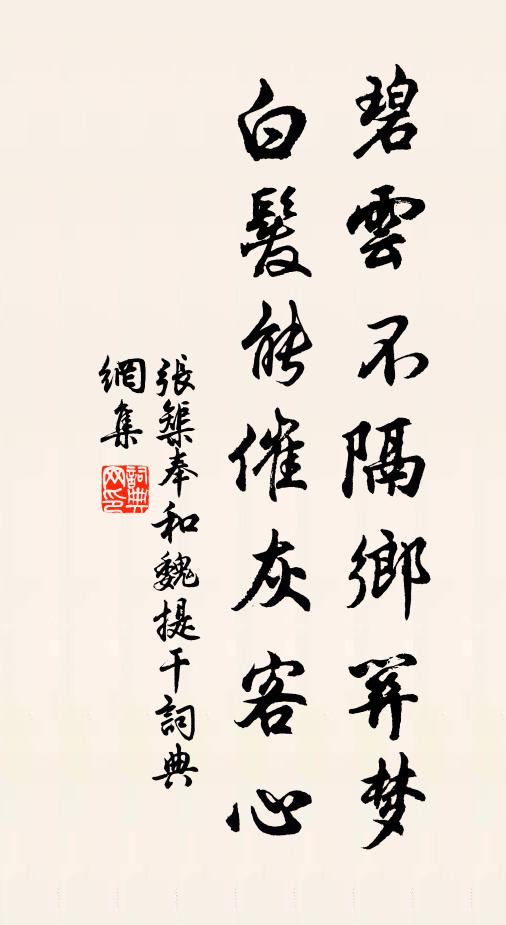 碧雲不隔鄉關梦
白髮能催灰客心
張榘奉和魏提干詞典
網集
詞典网印